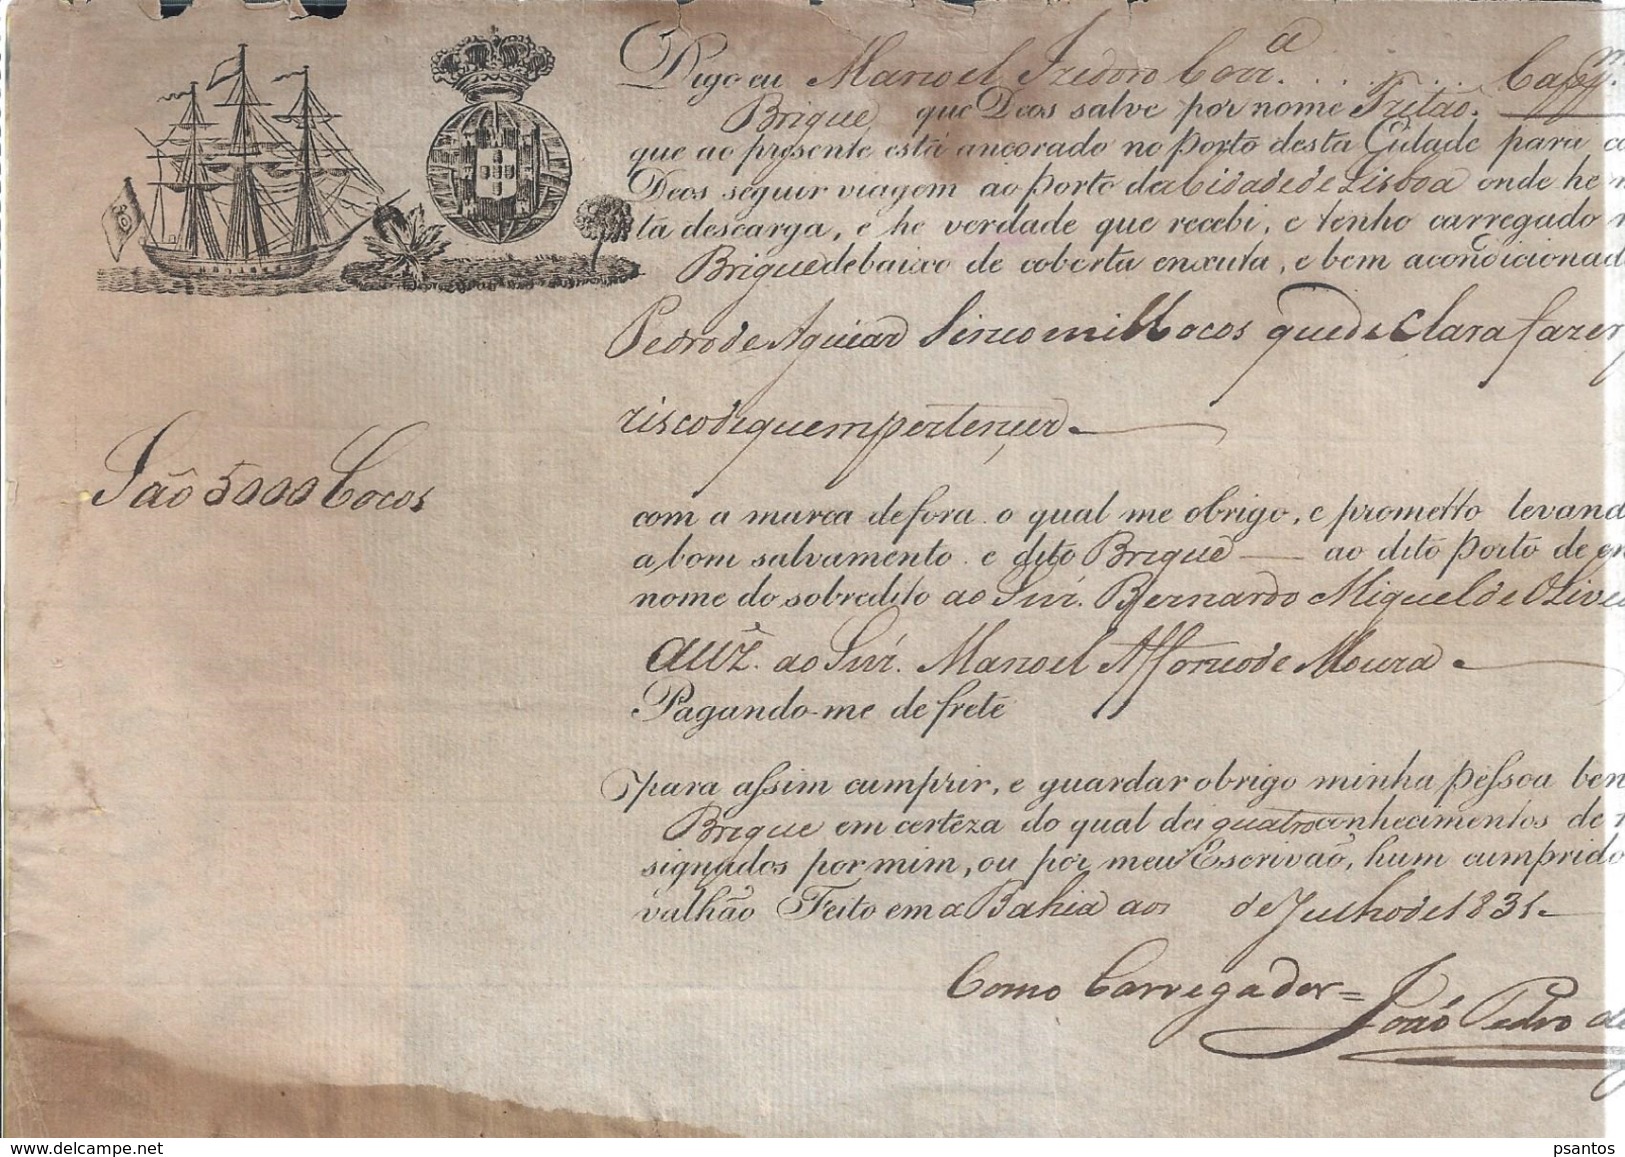 Digo eu Manoel Izidoro Corr.ª . . . . . Cap.m
Brigue, que Deos salve por nome Tritaõ.
que ao presente está ancorado no porto desta Cidade para co
Deos seguir viagem ao porto da Cidade de Lisboa onde he m
ta descarga, e he verdade que recebi, e tenho carregado n
Brigue debaixo de coberta enxuta, e bem acondicionad
Pedro de Aguiar Sinco mill Cocos que declara fazer p
risco de quem pertençer
São 5000 Cocos
com a marca de fora o qual me obrigo, e prometto levand
a bom salvamento e dito Brigue ao dito porto de en
nome do sobredito ao Snr. Bernardo Miguel de Olivei
auz. ao Snr. Manoel Affonco de Moura
Pagando-me de frete
para assim cumprir, e guardar obrigo minha pessoa ben
Brigue em certeza do qual dei quatro conhecimentos de
signados por mim, ou por meu Escrivaõ, hum cumprido
valhaõ Feito em a Bahia aos de Julho de 1831
Como Carregador = João Pedro de
psantos